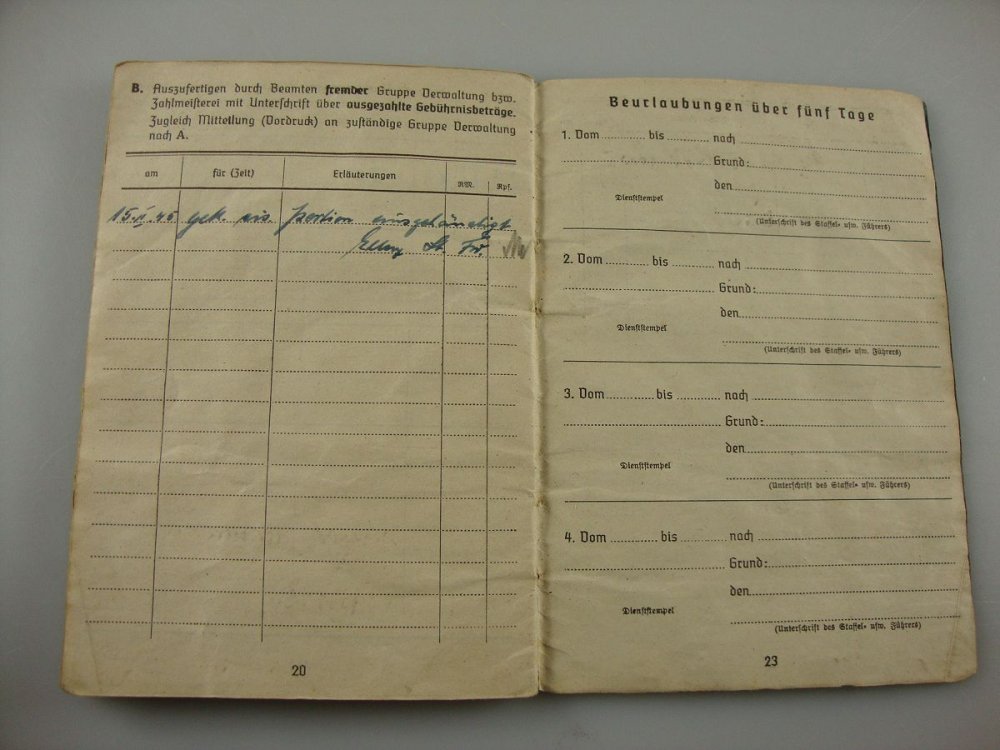 B. Auszufertigen durch Beamten fremder Gruppe Verwaltung bzw.
Zahlmeisterei mit Unterschrift über ausgezahlte Gebührnisbeträge.
Zugleich Mitteilung (Vordruck) an zuständige Gruppe Verwaltung
nach A.
am für (Zeit) Erläuterungen RM. Rpf.
15. 45 portion ausgehändigt
20
Beurlaubungen über fünf Tage
1. Vom bis nach
Grund:
den
Dienststempel
(Unterschrift des Staffel- usw. Führers)
2. Vom bis nach
Grund:
den
Dienststempel
(Unterschrift des Staffel- usw. Führers)
3. Vom bis nach
Grund:
den
Dienststempel
(Unterschrift des Staffel- usw. Führers)
4. Vom bis nach
Grund:
den
Dienststempel
(Unterschrift des Staffel- usw. Führers)
23